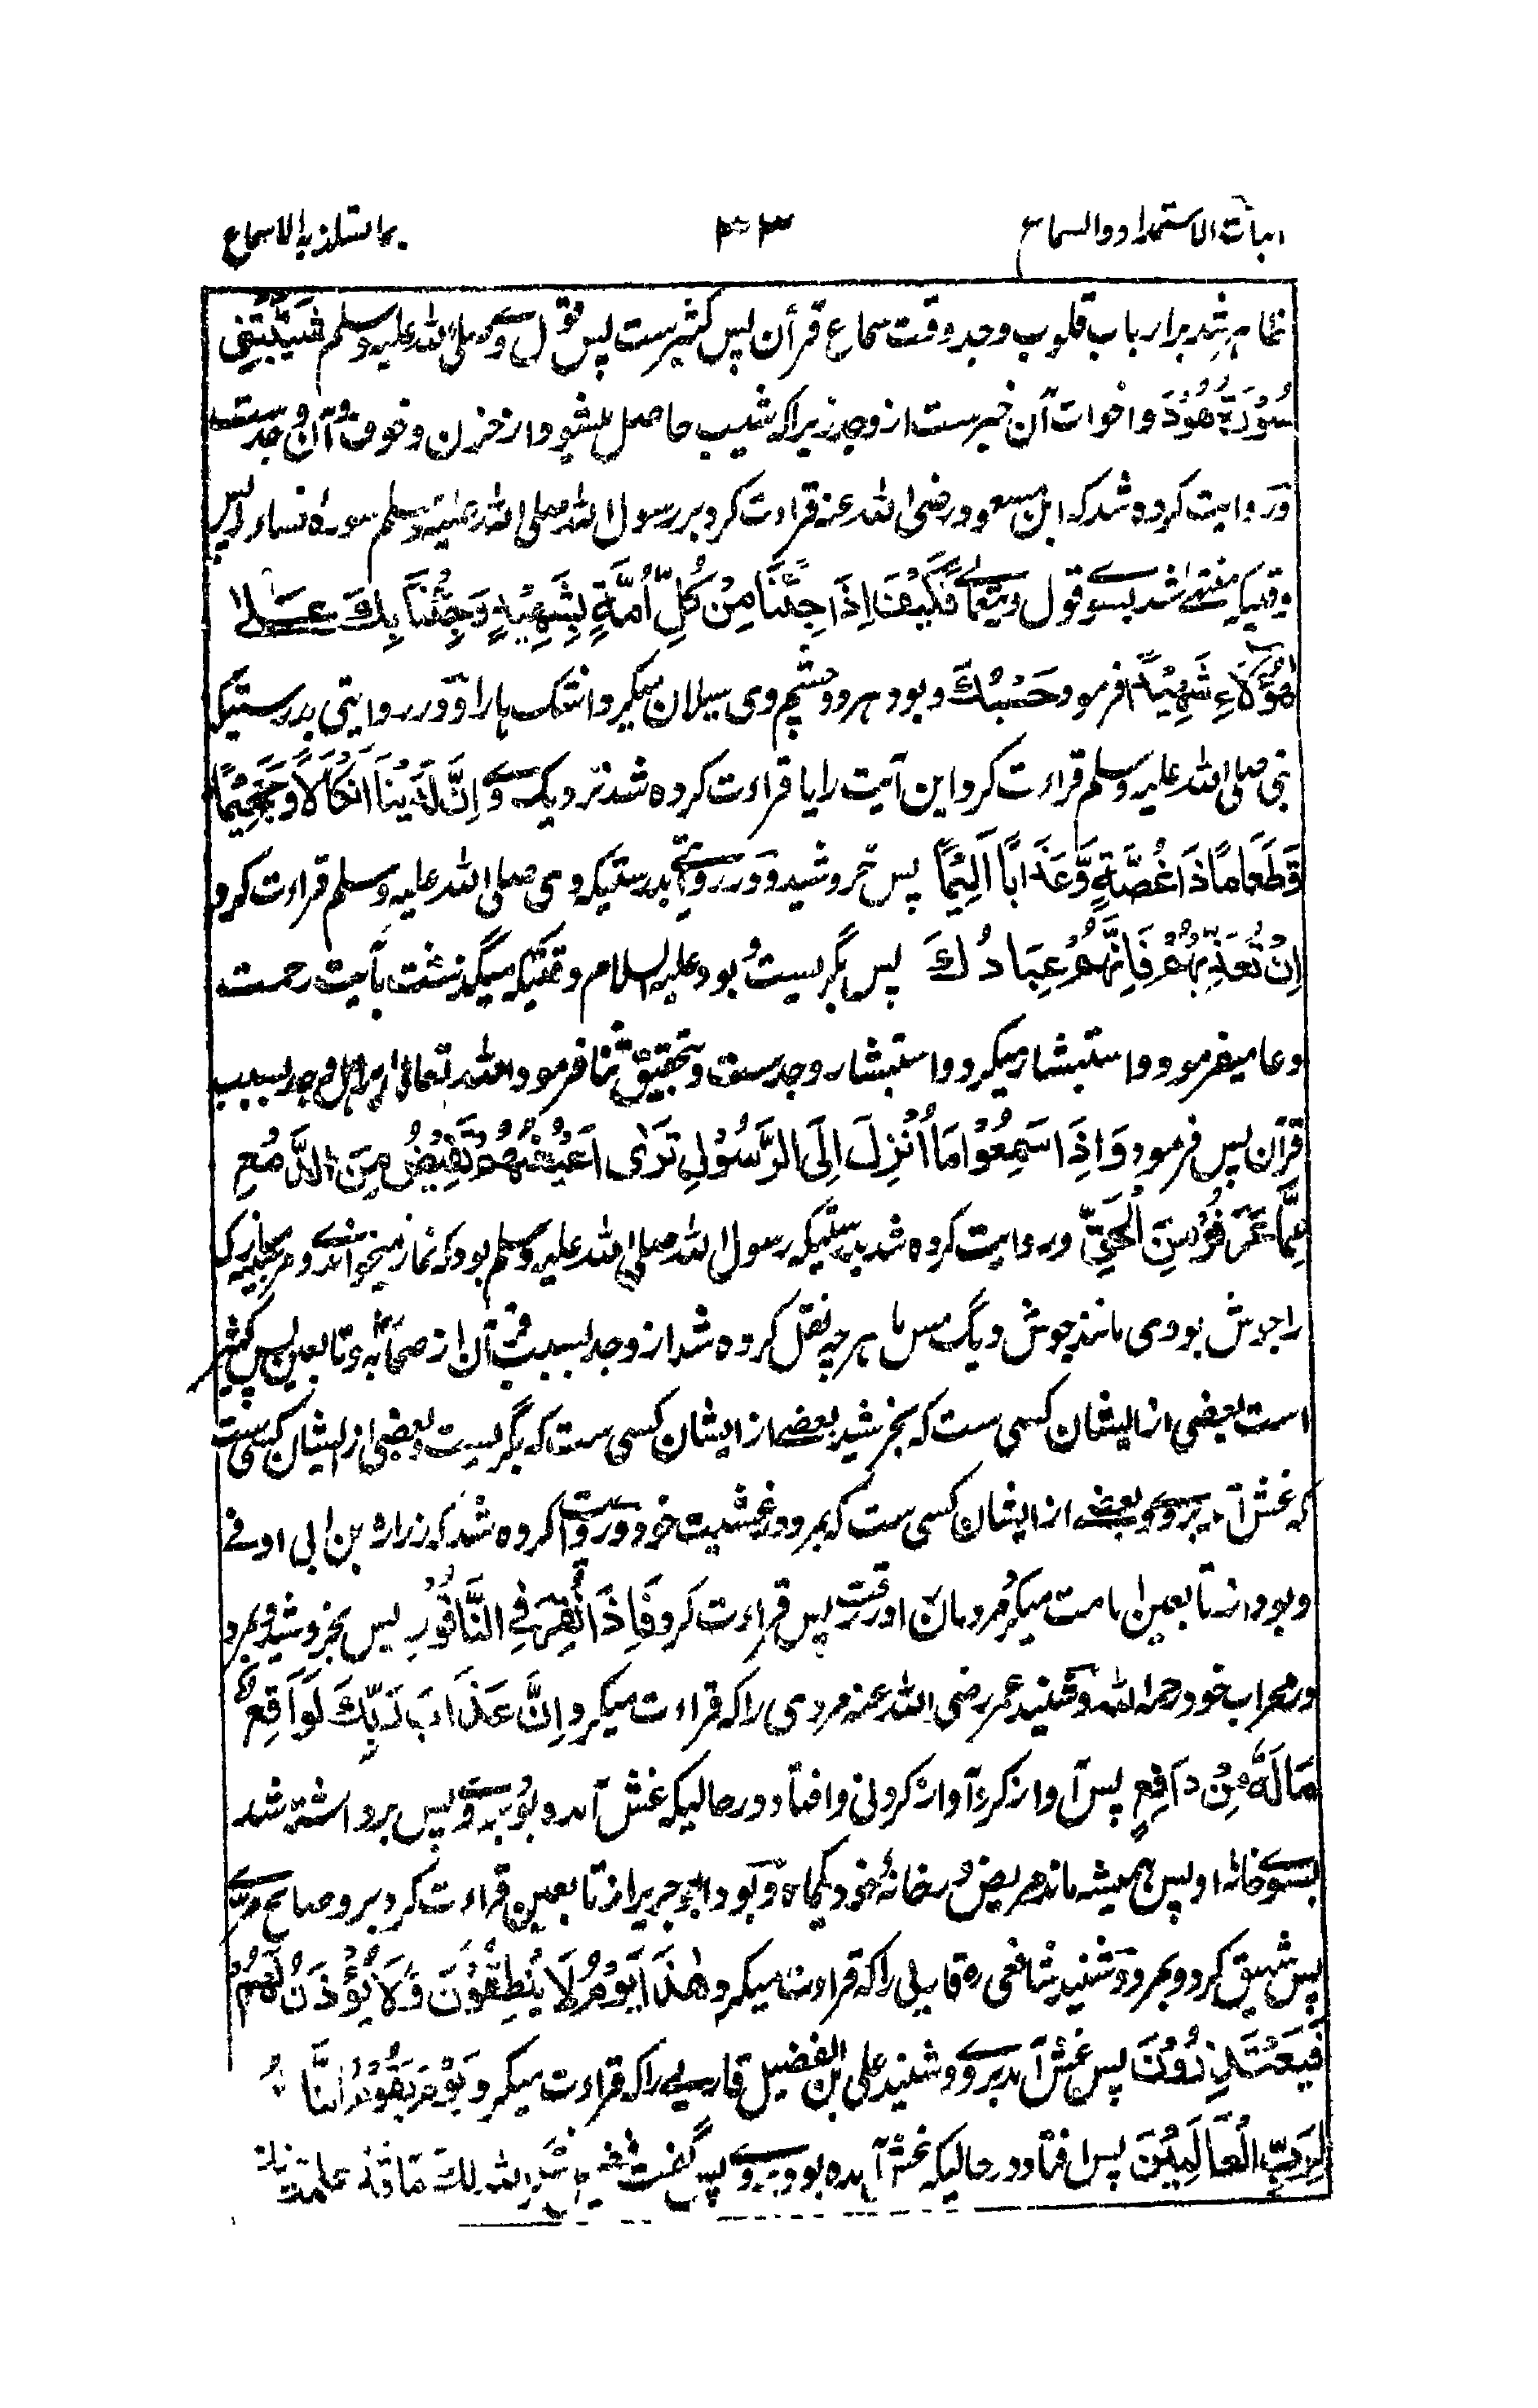 اثبات الاستمداد والسماع ۳۰۳ بما تستلذ به الاسماع
ظاهر شد بر ارباب قلوب وجد وقت سماع قرآن پس کثیرست پس قول وی صلی الله علیه وسلم شَيَّبَتْنِی
سُوْرَةُ هُوْدَ واخوات آن خبرست از وجد زیراکه شیب حاصل میشود از حزن و خوف و آن وجدست
وروایت کرده شد که ابن مسعود رضی الله عنه قراءت کرد بر رسول الله صلی الله علیه وسلم سوره نساء را پس
وقتیکه منتهی شد بسوی قول ویتعالے فَكَيْفَ اِذَا جِئْنَا مِنْ كُلِّ اُمَّةٍ بِشَهِيْدٍ وَجِئْنَا بِكَ عَلٰى
هٰؤُلَاءِ شَهِيْدًا فرمود حَسْبُكَ وبود هر دو چشم وی سیلان میکرد اشک ها را و در روایتی بدرستیکه
نبی صلی الله علیه وسلم قراءت کرد این آیت را یا قراءت کرده شد نزدیک وے اِنَّ لَدَيْنَا اَنْكَالًا وَّجَحِيْمًا
وَّطَعَامًا ذَا غُصَّةٍ وَّعَذَابًا اَلِيْمًا پس خروشید و در روایتے بدرستیکه وی صلی الله علیه وسلم قراءت کرد
اِنْ تُعَذِّبْهُمْ فَاِنَّهُمْ عِبَادُكَ پس بگریست و بود علیه السلام وقتیکه میگذشت بآیت رحمت
دعا میفرمود و استبشار میکرد و استبشار وجدست و تحقیق ثنا فرمود الله تعالی بر اهل وجد بسبب
قرآن پس فرمود وَاِذَا سَمِعُوْا مَا اُنْزِلَ اِلَى الرَّسُوْلِ تَرٰى اَعْيُنَهُمْ تَفِيْضُ مِنَ الدَّمْعِ
مِمَّا عَرَفُوْا مِنَ الْحَقِّ وروایت کرده شد بدرستیکه رسول الله صلی الله علیه وسلم بود که نماز میخواندے و مر سینه مبارک
را جوش بودی مانند جوش دیگ مس اما هرچه نقل کرده شد از وجد بسبب قرآن از صحابه و تابعین پس کثیر
است بعضی از ایشان کسی ست که بخروشید بعضے از ایشان کسی ست که بگریست و بعضی از ایشان کسی ست
که غش آمد بروی و بعضے از ایشان کسی ست که بمرد در غشیت خود و روایت کرده شد که زراره بن ابی اوفے
وبود از تابعین امامت میکرد مردمان را در رقه پس قراءت کرد فَاِذَا نُقِرَ فِي النَّاقُوْرِ پس بخروشید و بمرد
در محراب خود رحمه الله و شنید عمر رضی الله عنه مردی را که قراءت میکرد اِنَّ عَذَابَ رَبِّكَ لَوَاقِعٌ
مَالَهٗ مِنْ دَافِعٍ پس آواز کرد آواز کردنی و افتاد در حالیکه غش آمده بود بروے پس برداشته شد
بسوے خانه او پس همیشه ماند مریض در خانهٔ خود یکماه وبود ابو جریر از تابعین قراءت کرد برو صالح مری
پس شهیق کرد و بمرد و شنید شافعی ره قاریی را که قراءت میکرد هٰذَا يَوْمُ لَا يَنْطِقُوْنَ وَلَا يُؤْذَنُ لَهُمْ
فَيَعْتَذِرُوْنَ پس غش آمد بروے و شنید علی بن الفضیل قاریے را که قراءت میکرد يَوْمَ يَقُوْمُ النَّاسُ
لِرَبِّ الْعَالَمِيْنَ پس افتاد در حالیکه غش آمده بود بروے پس گفت فضیل شکر الله لك ماقد علمه